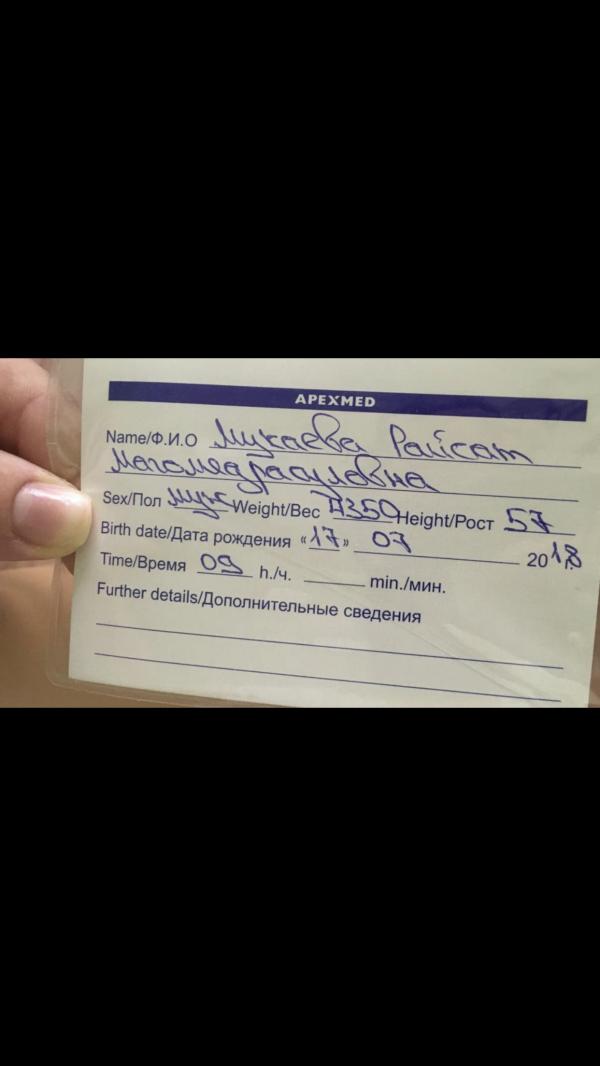 APEXMED
Name/Ф.И.О Мукаева Райсат
Магомедрасуловна
Sex/Пол муж Weight/Вес 4350 Height/Рост 57
Birth date/Дата рождения «17» 07 2018
Time/Время 09 h./ч. min./мин.
Further details/Дополнительные сведения